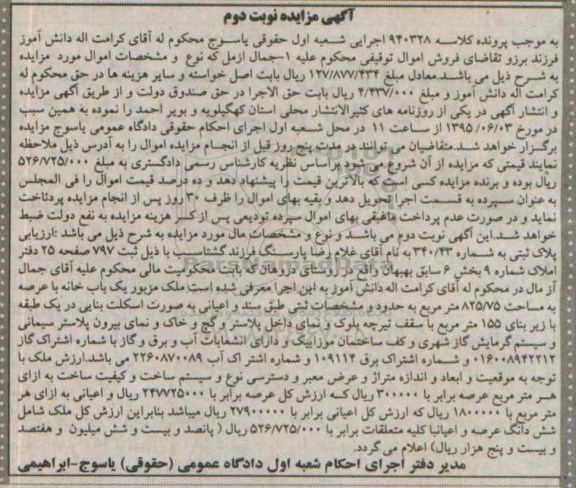 آگهی مزایده نوبت دوم
به موجب پرونده کلاسه ۹۴۰۳۲۸ اجرایی شعبه اول حقوقی یاسوج محکوم له آقای کرامت اله دانش آموز
فرزند برزو تقاضای فروش اموال توقیفی محکوم علیه ۱-جمال ازمل که نوع و مشخصات اموال مورد مزایده
به شرح ذیل می باشد.معادل مبلغ ۱۲۷/۸۷۷/۴۳۴ ریال بابت اصل خواسته و سایر هزینه ها در حق محکوم له
کرامت اله دانش آموز و مبلغ ۴/۴۳۷/۰۰۰ ریال بابت حق الاجرا در حق صندوق دولت و از طریق آگهی مزایده
و انتشار آگهی در یکی از روزنامه های کثیرالانتشار محلی استان کهگیلویه و بویر احمد را نموده به همین سبب
در مورخ ۱۳۹۵/۰۶/۰۳ از ساعت ۱۱ در محل شعبه اول اجرای احکام حقوقی دادگاه عمومی یاسوج مزایده
برگزار خواهد شد.متقاضیان می توانند در مدت پنج روز قبل از انجام مزایده اموال را به آدرس ذیل ملاحظه
نمایند قیمتی که مزایده از آن شروع می شود براساس نظریه کارشناس رسمی دادگستری به مبلغ ۵۲۶/۷۲۵/۰۰۰
ریال بوده و برنده مزایده کسی است که بالاترین قیمت را پیشنهاد دهد و ده درصد قیمت اموال را فی المجلس
به عنوان سپرده به قسمت اجرا تحویل دهد و بقیه بهای اموال را ظرف ۳۰ روز پس از انجام مزایده پرداخت
نماید و در صورت عدم پرداخت مابقی بهای اموال سپرده تودیعی پس از کسر هزینه مزایده به نفع دولت ضبط
خواهد شد.این آگهی نوبت دوم می باشد و نوع و مشخصات مال مورد مزایده به شرح ذیل می باشد :ارزیابی
پلاک ثبتی به شماره ۳۴۰/۴۳ به نام آقای غلام رضا پارسنگ فرزند گشتاسب با ذیل ثبت ۷۹۷ صفحه ۲۵ دفتر
املاک شماره ۹ بخش ۶ سابق بهبهان واقع در روستای دروهان که بابت محکومیت مالی محکوم علیه آقای جمال
آز مال در محکوم له آقای کرامت اله دانش آموز به این اجرا معرفی شده است.ملک مزبور یک باب خانه با عرصه
به مساحت ۸۲۵/۷۵ متر مربع به حدود و مشخصات ثبتی طبق سند و اعیانی به صورت اسکلت بنایی در یک طبقه
با زیر بنای ۱۵۵ متر مربع با سقف تیرچه بلوک و نمای داخل پلاستر و گچ و خاک و نمای بیرون پلاستر سیمانی
و سیستم گرمایش گاز شهری و کف ساختمان موزائیک و دارای انشعابات آب و برق و گاز با شماره اشتراک گاز
۰۱۶۰۰۸۹۴۲۲۱۲ و شماره اشتراک برق ۱۰۹۱۱۴ و شماره اشتر اک آب ۲۲۶۰۸۷۰۰۸۹ می باشد.ارزش ملک با
توجه به موقعیت و ابعاد و اندازه متراژ و عرض معبر و دسترسی نوع و سیستم ساخت و کیفیت ساخت به ازای
هر متر مربع عرصه برابر با ۳۰۰۰۰۰ ریال که ارزش کل عرصه برابر با ۲۴۷۷۲۵۰۰۰ ریال و اعیانی به ازای هر
متر مربع با ۱۸۰۰۰۰۰ ریال که ارزش کل اعیانی برابر با ۲۷۹۰۰۰۰۰۰ ریال میباشد بنابراین ارزش کل ملک شامل
شش دانگ عرصه و اعیانیا کلیه متعلقات برابر با ۵۲۶/۷۲۵/۰۰۰ ریال ( پانصد و بیست و شش میلیون و هفتصد
و بیست و پنج هزار ریال) اعلام می گردد.
مدیر دفتر اجرای احکام شعبه اول دادگاه عمومی (حقوقی) یاسوج-ابراهیمی